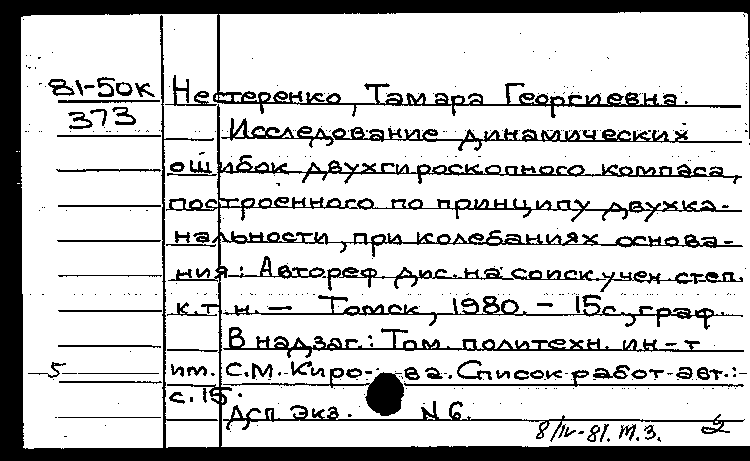 81-50к Нестеренко, Тамара Георгиевна.
373
Исследование динамических
ошибок двухгироскопного компаса,
построенного по принципу двухка-
нальности, при колебаниях основа-
ния: Автореф. дис. на соиск. учен степ.
к.т.н. — Томск, 1980. – 15с., граф.
В надзаг.: Том. политехн. ин-т
5 им. С.М. Киро- ва. Список работ авт.:
с. 15.
Дсп Экз. N 6.
8/IV-81. М.З. 2